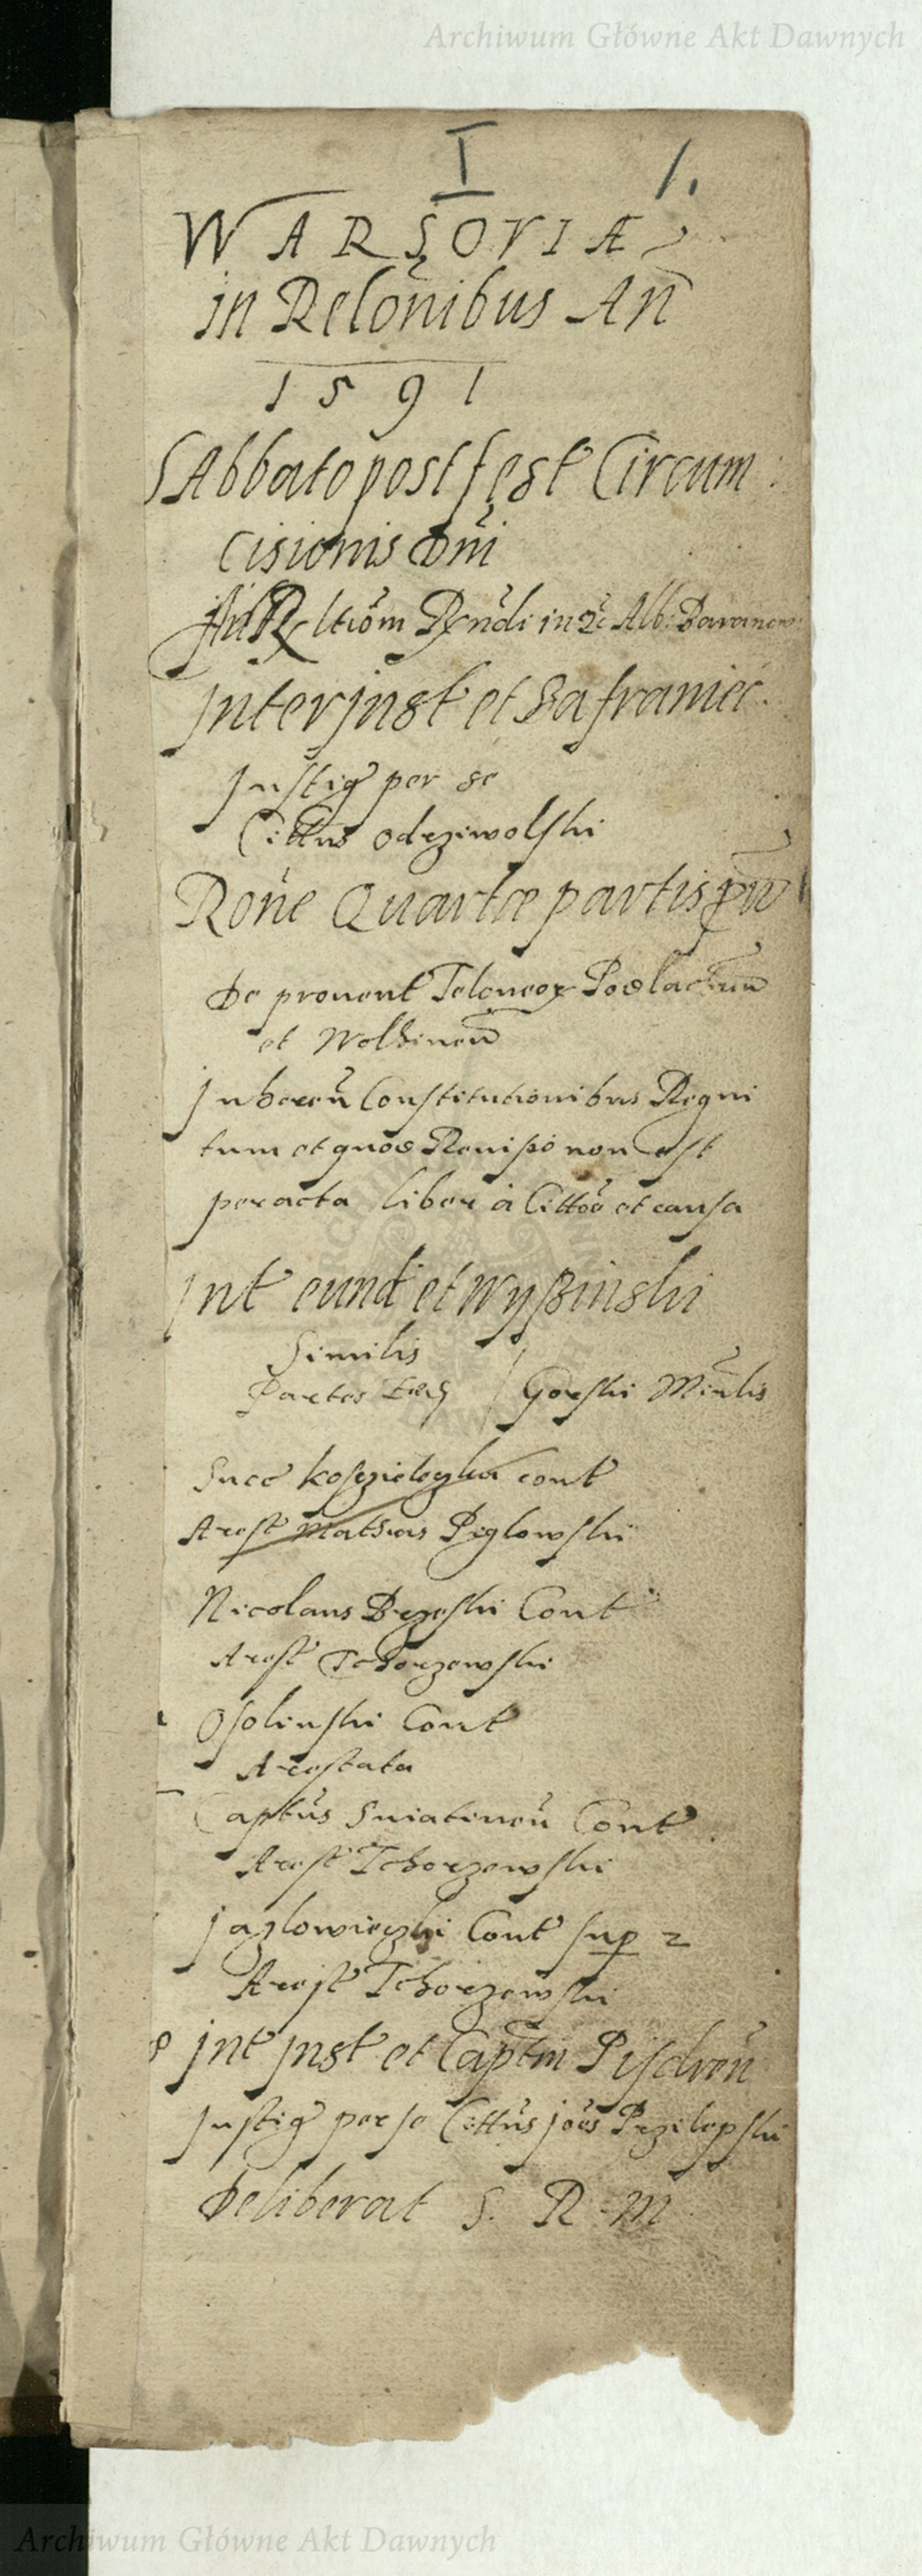 Archiwum Główne Akt Dawnych
I 1.
WARSOVIÆ
in Relonibus An
1591
SAbbato post fest Circum
cisionis Dni
Ad Rndi in Alb: Baranow:
Inter Inst et Szafraniec.
Instig per se
Cittus Odrziwolski
Rone Quartæ partis
De prouent Teloneor Podlachien
et Wolhinen
Inheren Constitutionibus Regni
tum et quod Reuisio non est
peracta liber à Cittoe et causa
Int eund et Wyszinski
Similis
Partes Gorski
Succ Koscielezka cont
Arest Mathias Peglowski
Nicolaus Brzeski Cont
Arest Tchorzewski
Osolinski Cont
Arestata
Captus Sniatinen Cont
Arest Tchorzewski
Jazlowieczki Cont sup 2
Arest Tchorzewski
Int Inst et Captm Pisdren
Instig per se Cittus Joes Przilepski
Deliberat S. R. M.
Archiwum Główne Akt Dawnych